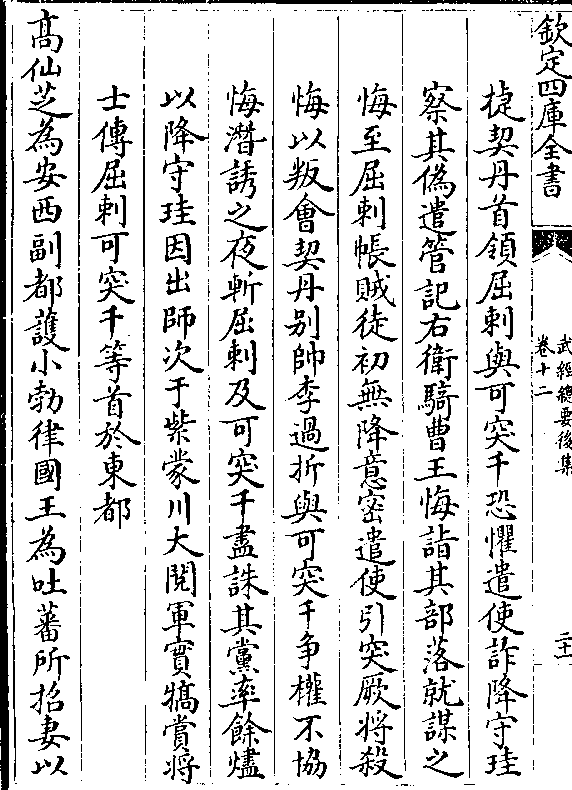 欽定四庫全書
武經總要後集
卷十二
二十一
捷契丹首領屈剌與可突干恐懼遣使詐降守珪
察其偽遣管記右衛騎曹王悔詣其部落就謀之
悔至屈剌帳賊徒初無降意密遣使引突厥將殺
悔以叛會契丹别帥李過折與可突干争權不協
悔潛誘之夜斬屈剌及可突干盡誅其黨率餘燼
以降守珪因出師次于紫蒙川大閱軍實犒賞將
士傳屈剌可突干等首於東都
高仙芝為安西副都護小勃律國王為吐蕃所招妻以